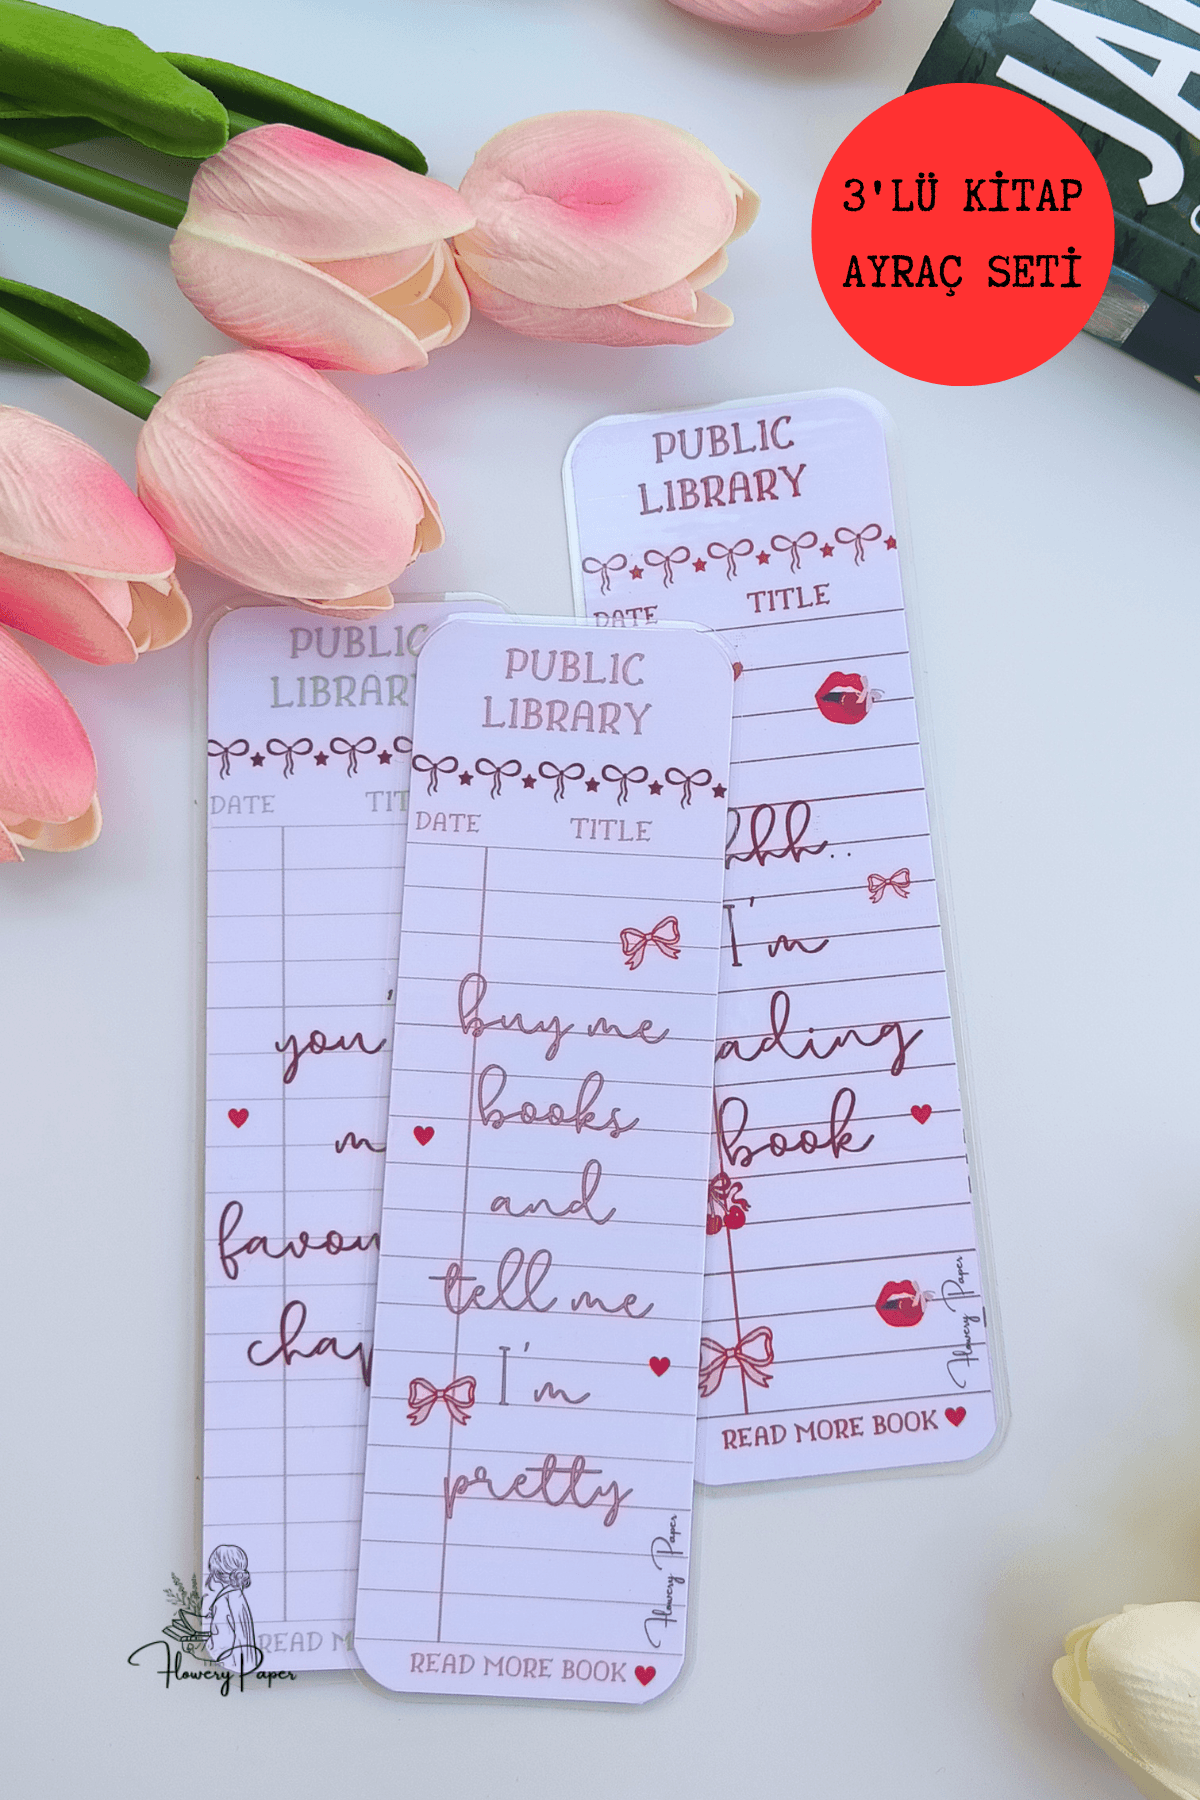 JA
3'LÜ KİTAP
AYRAÇ SETİ
PUBLIC
LIBRARY
DATE TITLE
hhh..
I'm
ading
book
Flowery Paper
READ MORE BOOK
PUBLIC
LIBRARY
DATE TIT
you'
m
favou
chap
READ M
Flowery Paper
PUBLIC
LIBRARY
DATE TITLE
buy me
books
and
tell me
I'm
pretty
Flowery Paper
READ MORE BOOK